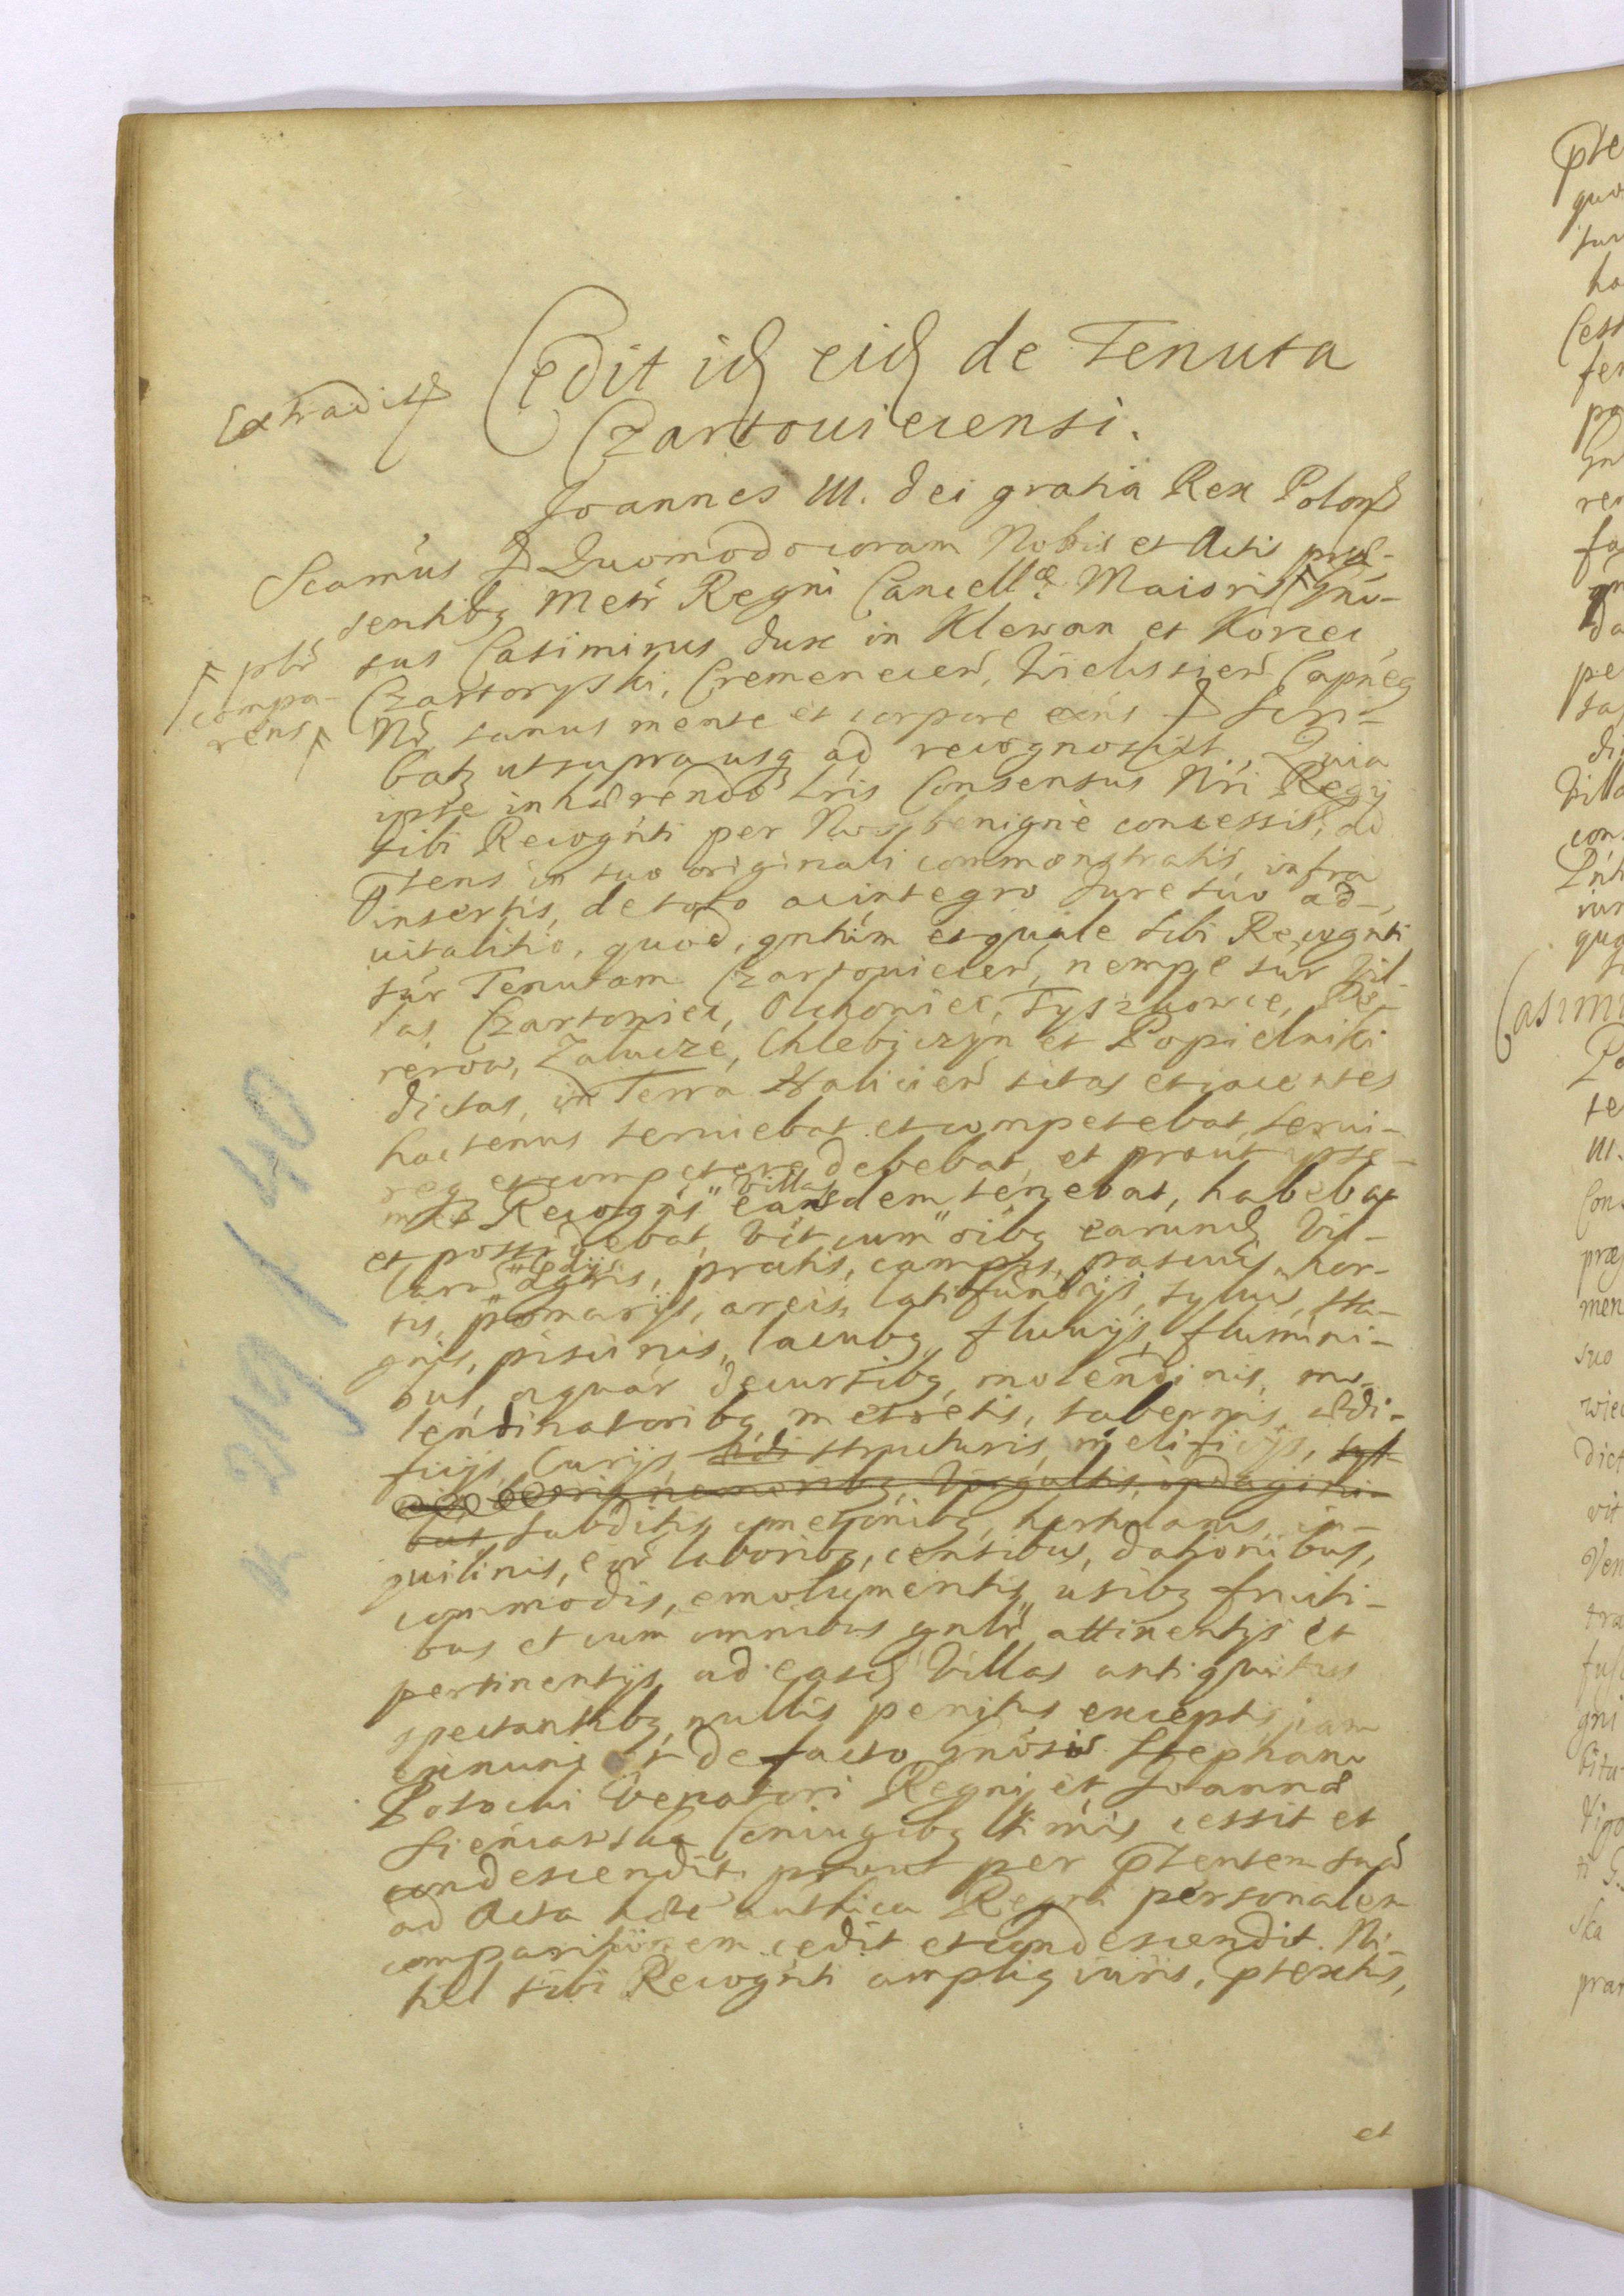 Cedit id eid de Tenuta
Extradit
Czartouiecensi.
Joannes III. Dei gratia Rex Polon
Quomodo coram Nobis et Actis præ-
sentibq Metr Regni Cancellæ Maioris gnō-
plr compa-
rens
sus Casimirus dux in Klewan et Korzec
Czartoryski, Cremenecen, Capneq
Nr sanus mente et corpore exns
batq ut supra usq ad recognosixt, Quia
ipse inhærendo Lris Consensus Nri Regij
sibi Recognti per Nos benigne concessis, ad
ptens in suo originali commonstratis infra
insertis, de toto ac integro Jure suo ad-
uitalitio, quod, qntum et quale sibi Recognti
sur Tenutam Czartouiecen, nempe sur Vil-
las Czartowiec, Tyszkowce,
rerow, Zalucze, Chlebiczyn et Popielniki
dictas, in Terra Halicien sitas et iacentes
hactenus seruiebat et competebat, serui-
req et competere debebat, et prout ipse-
met Recogns easdem villas tenebat, habebat
et possidebat, Vit cum oibq earund Vil-
laru agris, pratis, campis, pascuis hor-
tis, pomarijs, areis, latifundijs, syluis, sta-
gnis, piscinis, lacubq fluuijs, flumini-
bus, aquar decursibq, molendinis, mo-
lendinatoribq metretis, tabernis, ædi-
ficijs, Curijs, structuris, melificijs,
nemoribq, Virgultis, indagini-
bus subditis cmetonibq, hortulanis in-
quilinis, eor laboribq, censibus, dationibus,
commodis, emolumentis, usibq fructi-
bus et cum omnibus gnlr attinentijs et
pertinentijs ad easd Villas antiquitus
spectantibq nullis penitus exceptis, jam
exnunc et de facto gnosis Stephano
Potocki Venatori Regni et Joannæ
Sieniawska Coniugibq ltimis cessit et
condescendit prout per ptensem suã
ad Acta hæc authica Regni personalem
comparitionem cedit et condescendit. Ni-
hil sibi Recognti ampliq iuris, ptextus,
et
k 219 / 40